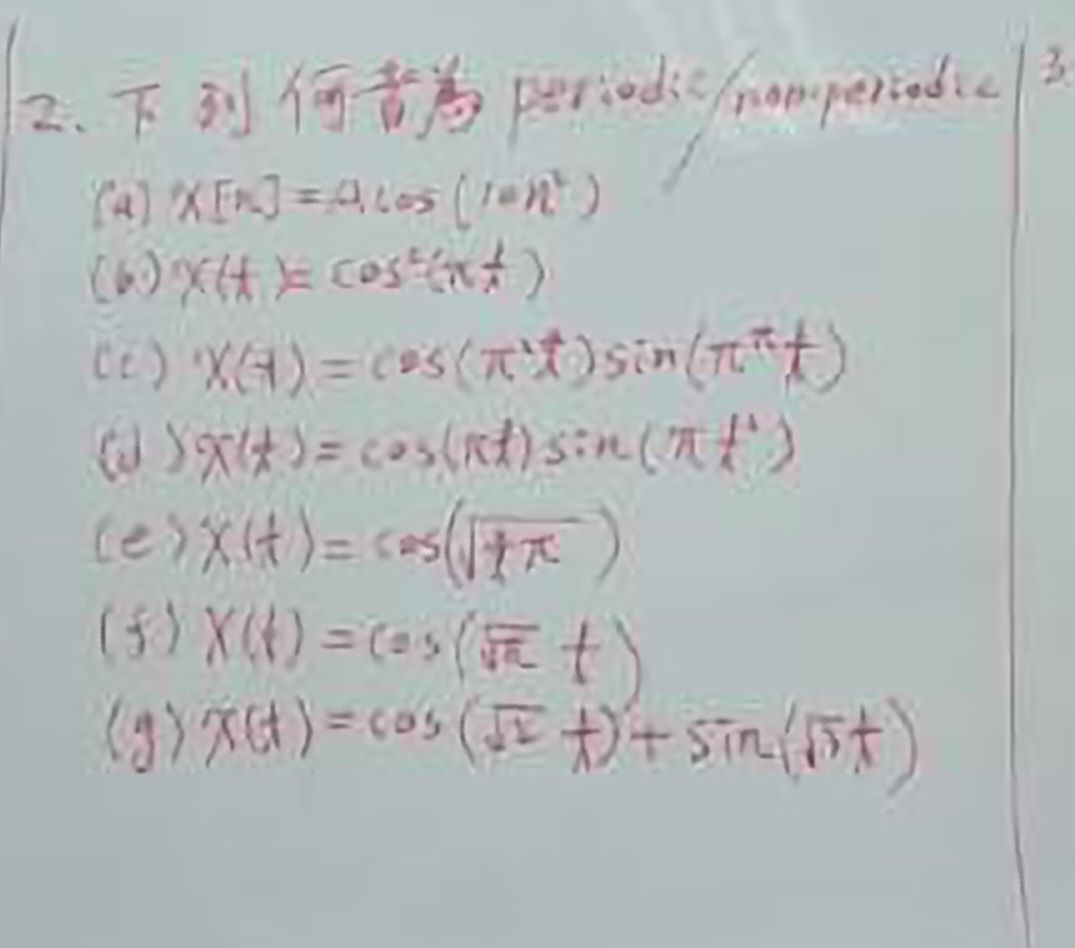 2. 下列何者為 periodic/non-periodic
(a) x[n]=A cos(10n²)
(b) x(t)=cos²(πt)
(c) x(t)=cos(π²t)sin(π^πt)
(d) x(t)=cos(πt)sin(πt²)
(e) x(t)=cos(√tπ)
(f) x(t)=cos(√π t)
(g) x(t)=cos(√2 t)+sin(√5t)
3.